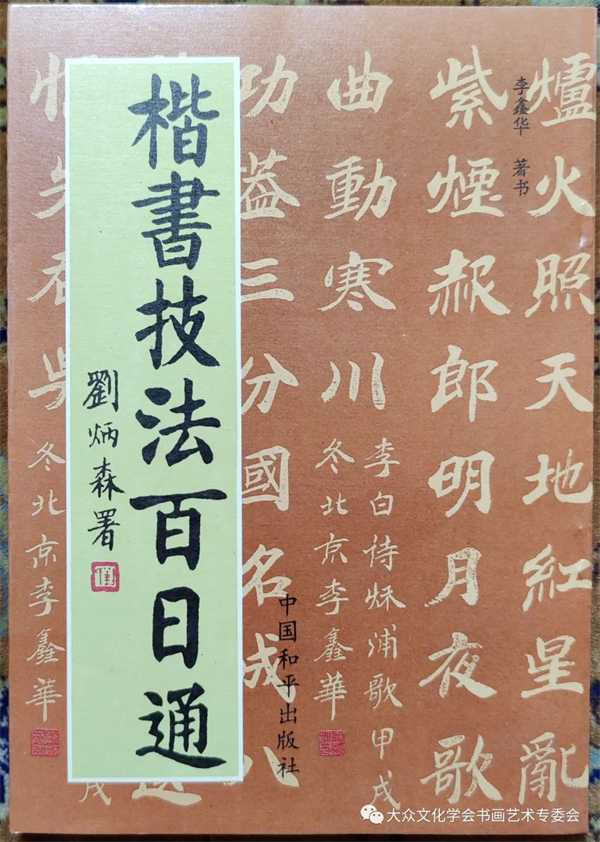 爐火照天地紅星亂
紫煙赧郎明月夜歌
曲動寒川
李白诗秌浦歌甲戌
冬北京李鑫華
李鑫华 著书
功蓋三分國名成八
冬北京李鑫華
戌
楷書技法百日通
劉炳森署
中国和平出版社
大众文化学会书画艺术专委会